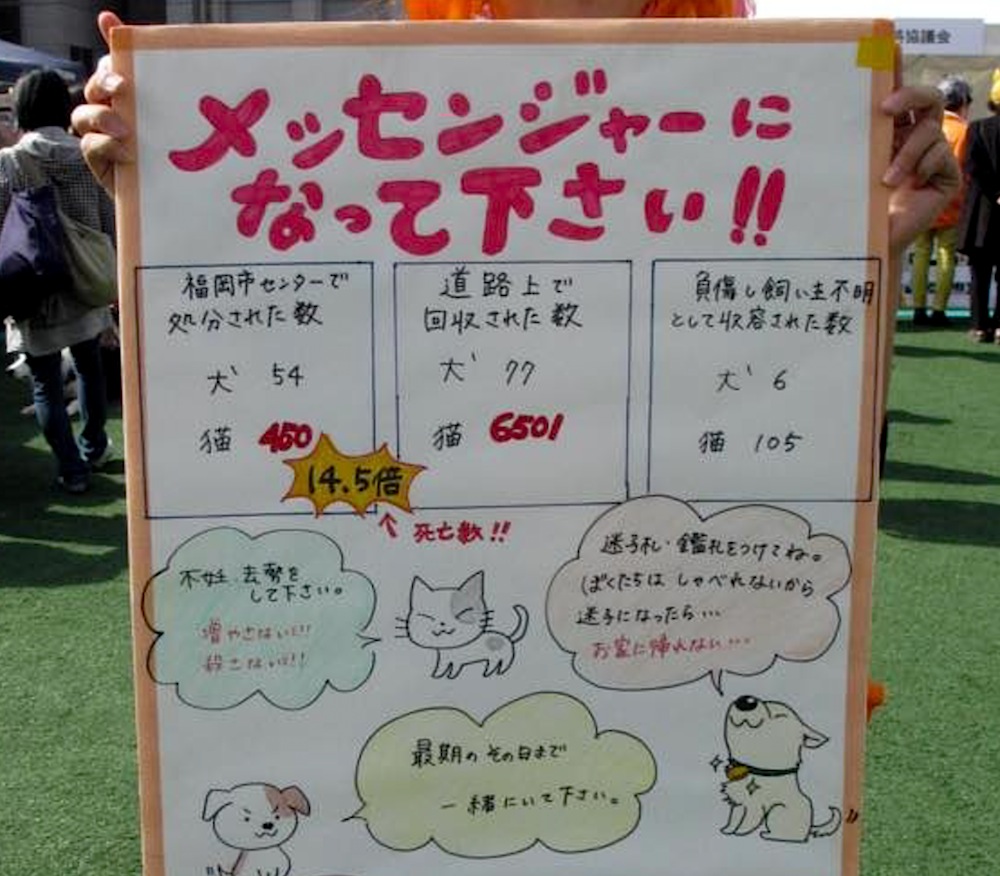 協議会
メッセンジャーに
なって下さい!!
福岡市センターで
処分された数
犬 54
猫 450
道路上で
回収された数
犬 77
猫 6501
負傷し飼い主不明
として収容された数
犬 6
猫 105
14.5倍
↑ 死亡数!!
不妊.去勢を
して下さい。
増やさない!!!
殺さない!!!
迷子札・鑑札をつけてね。
ぼくたちは しゃべれないから
迷子になったら…
お家に帰れない…
最期の その日まで
一緒にいて下さい。